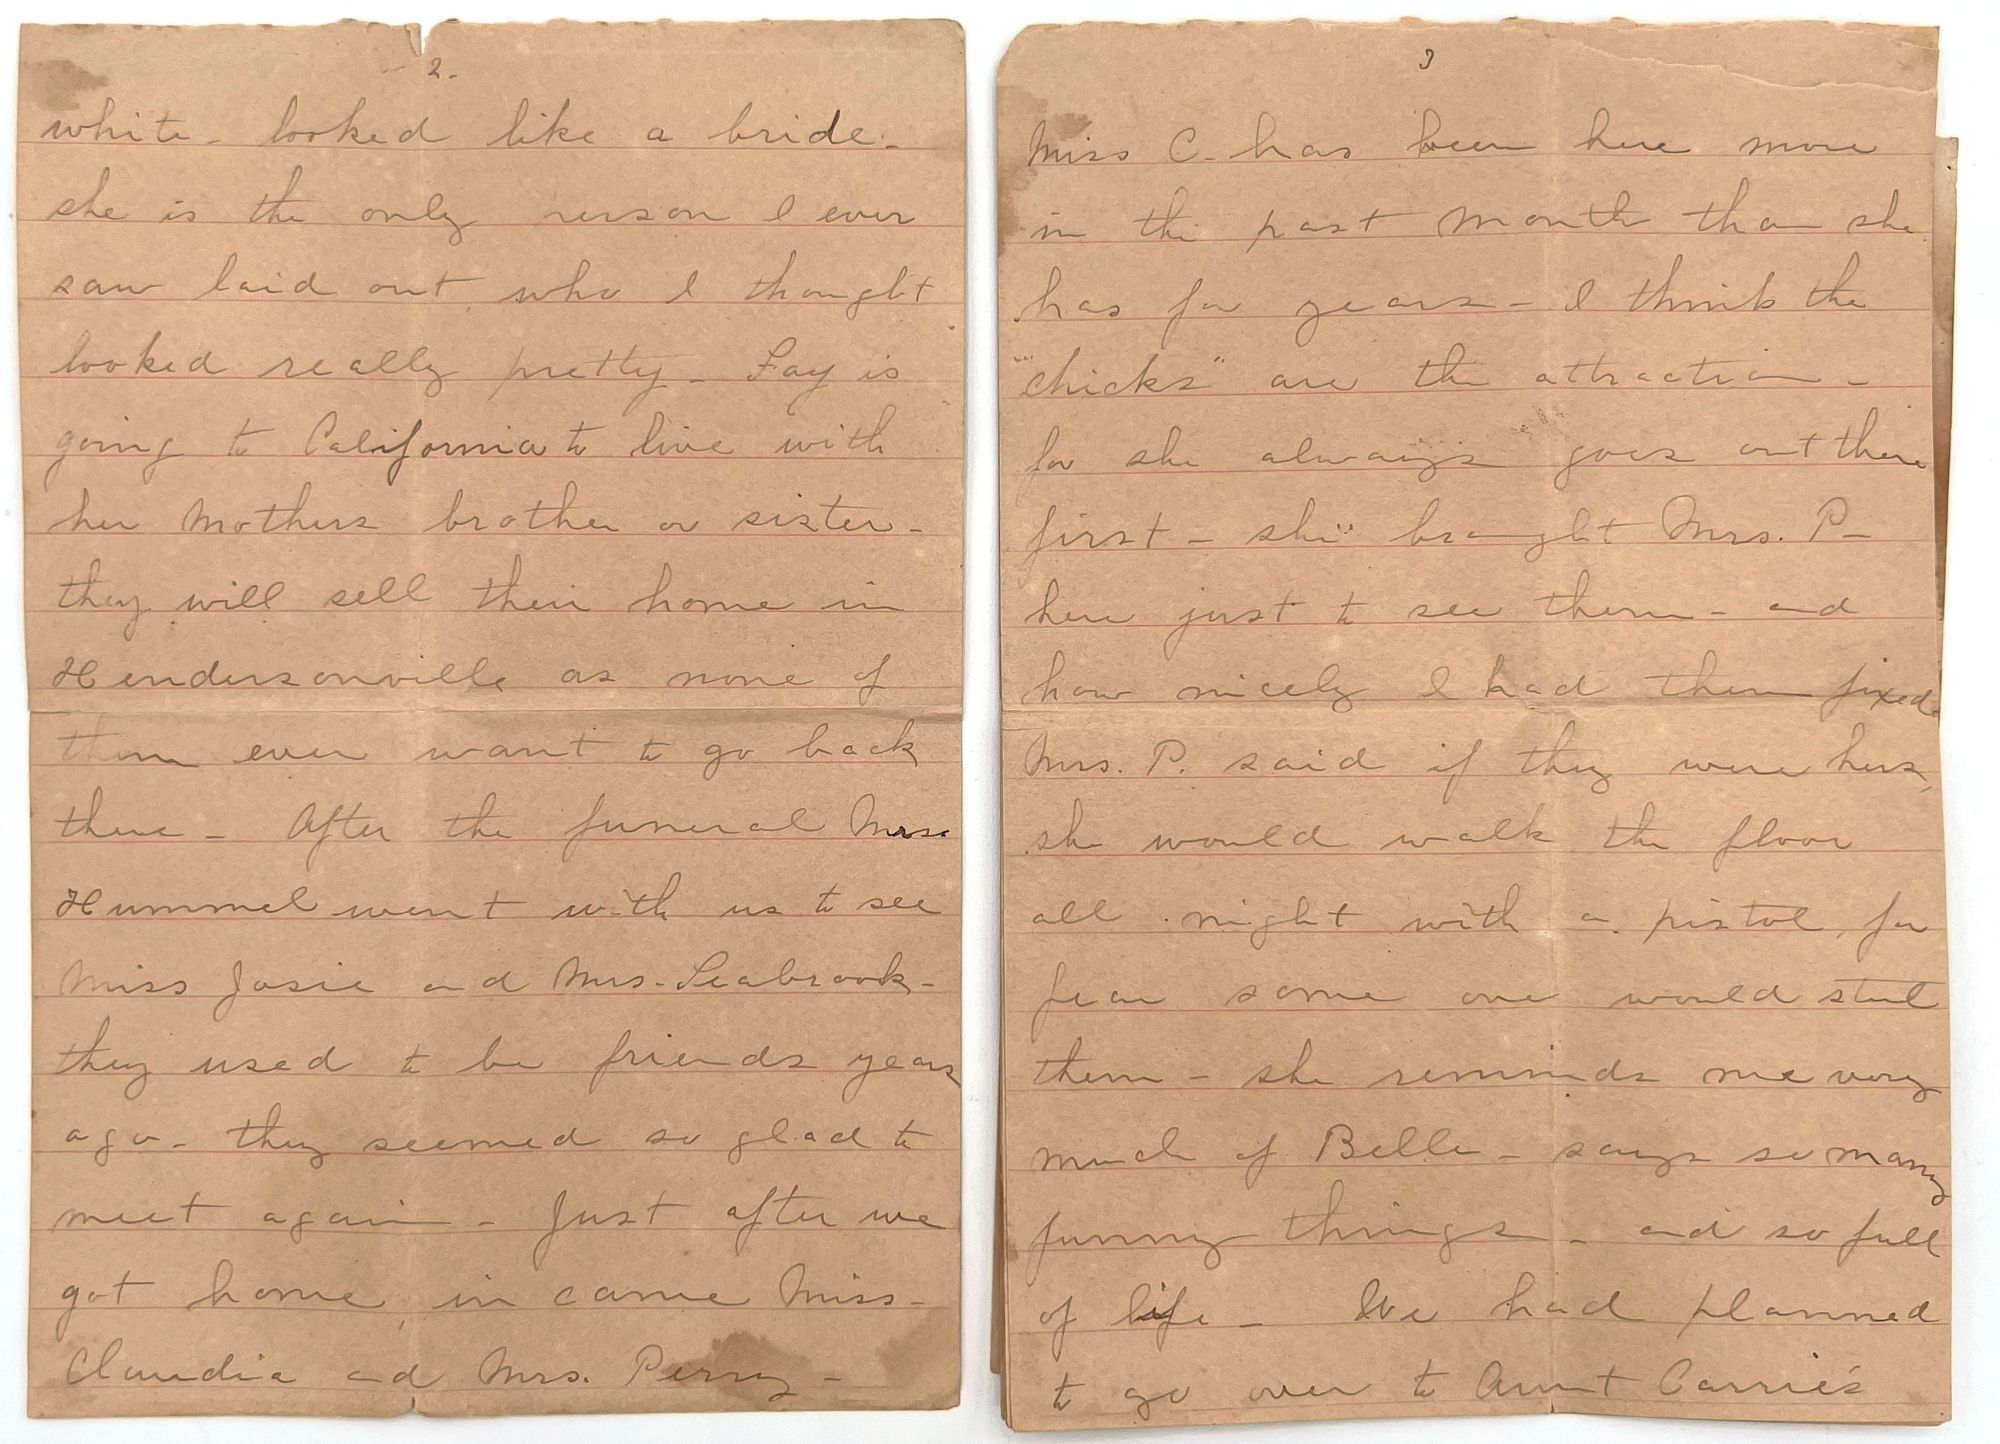 2.
white - looked like a bride -
she is the only person I ever
saw laid out who I thought
looked really pretty - Fay is
going to California to live with
her Mothers brother or sister -
they will sell their home in
Hendersonville as none of
them ever want to go back
there - After the funeral Mrs.
Hummel went with us to see
Miss Josie and Mrs. Seabrook -
they used to be friends years
ago - they seemed so glad to
meet again - Just after we
got home, in came Miss -
Claudia and Mrs. Perry -
3
Miss C - has been here more
in the past month than she
has for years - I think the
"chicks" are the attraction -
for she always goes out there
first - she brought Mrs. P -
here just to see them - and
how nicely I had them fixed
Mrs. P. said if they were hers,
she would walk the floor
all night with a pistol, for
fear some one would steal
them - she reminds me very
much of Belle - says so many
funny things - and so full
of life - We had planned
to go over to Aunt Carrie's